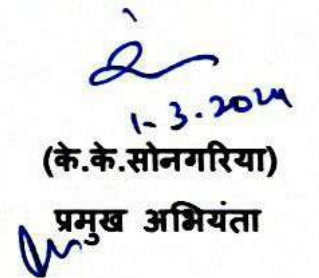 1-3-2024
(के.के.सोनगरिया)
प्रमुख अभियंता